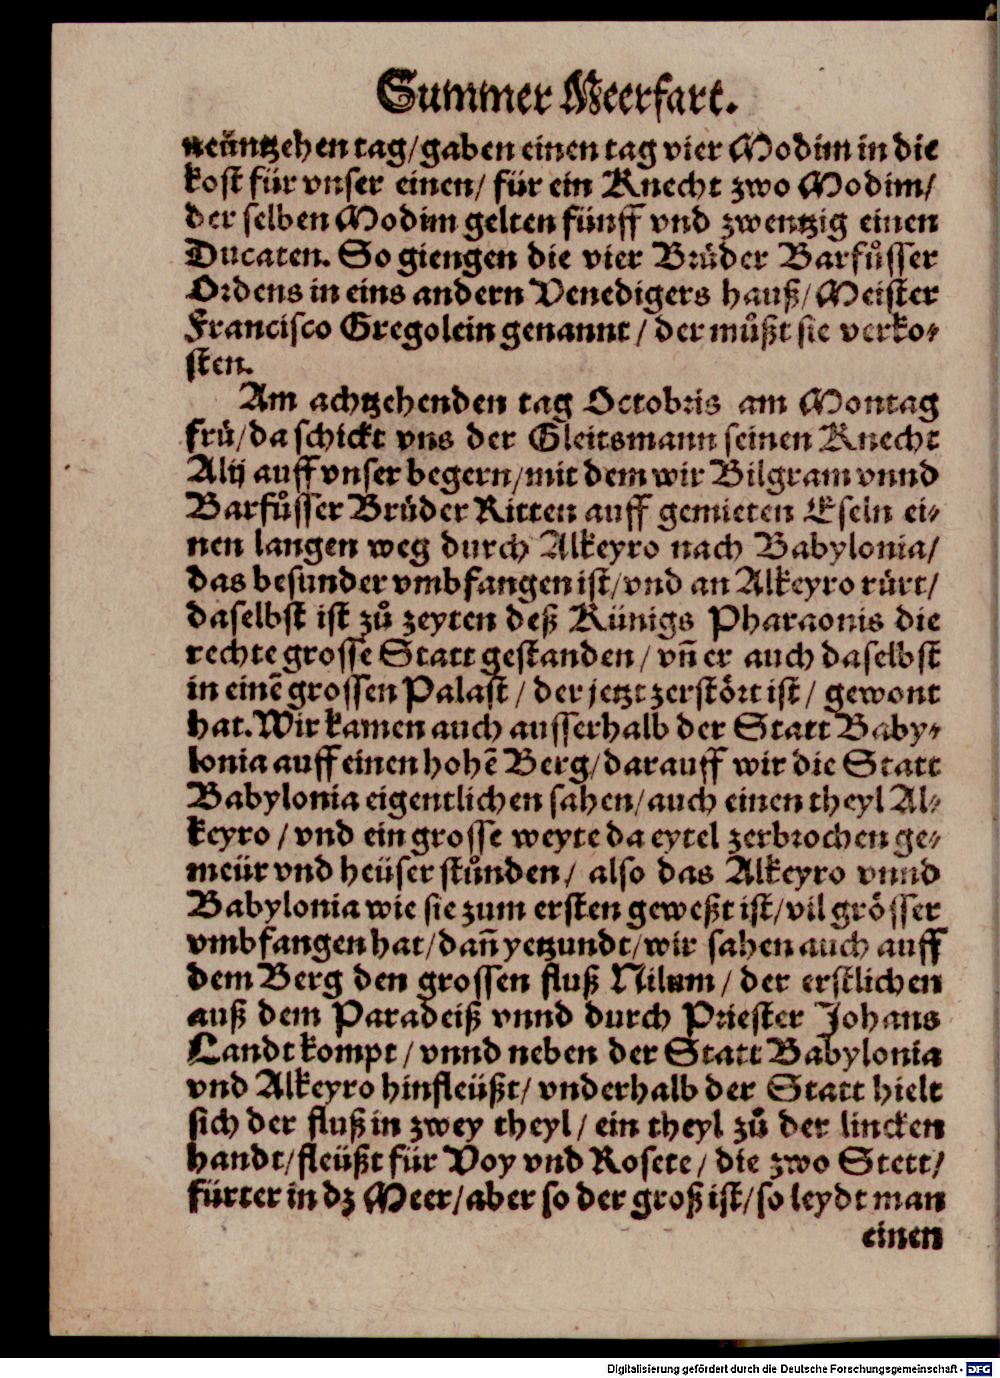 Summer Meerfart.
neüntzehen tag/gaben einen tag vier Modim in die
kost für vnser einen/ für ein Knecht zwo Modim/
der selben Modim gelten fünff vnd zwentzig einen
Ducaten. So giengen die vier Brüder Barfůsser
Ordens in eins andern Venedigers hauß/Meister
Francisco Gregolein genannt/ der můßt sie verko-
sten.
Am achtzehenden tag Octobris am Montag
frü/da schickt vns der Gleitsmann seinen Knecht
Alij auff vnser begern/mit dem wir Bilgram vnnd
Barfůsser Brüder Ritten auff gemieten Eseln ei-
nen langen weg durch Alkeyro nach Babylonia/
das besunder vmbfangen ist/vnd an Alkeyro rürt/
daselbst ist zů zeyten deß Künigs Pharaonis die
rechte grosse Statt gestanden/ vñ er auch daselbst
in einẽ grossen Palast/ der jetzt zerstört ist/ gewont
hat. Wir kamen auch ausserhalb der Statt Baby-
lonia auff einen hohẽ Berg/darauff wir die Statt
Babylonia eigentlichen sahen/auch einen theyl Al-
keyro/ vnd ein grosse weyte da eytel zerbrochen ge-
meür vnd heüser stůnden/ also das Alkeyro vnnd
Babylonia wie sie zum ersten geweßt ist/vil grösser
vmbfangen hat/dañ yetzundt/wir sahen auch auff
dem Berg den grossen fluß Nilum/ der erstlichen
auß dem Paradeiß vnnd durch Priester Johans
Landt kompt/ vnnd neben der Statt Babylonia
vnd Alkeyro hinfleüßt/ vnderhalb der Statt hielt
sich der fluß in zwey theyl/ ein theyl zů der lincken
handt/fleüßt für Voy vnd Rosete/ die zwo Stett/
fürter in dz Meer/aber so der groß ist/so leydt man
einen
Digitalisierung gefördert durch die Deutsche Forschungsgemeinschaft - DFG